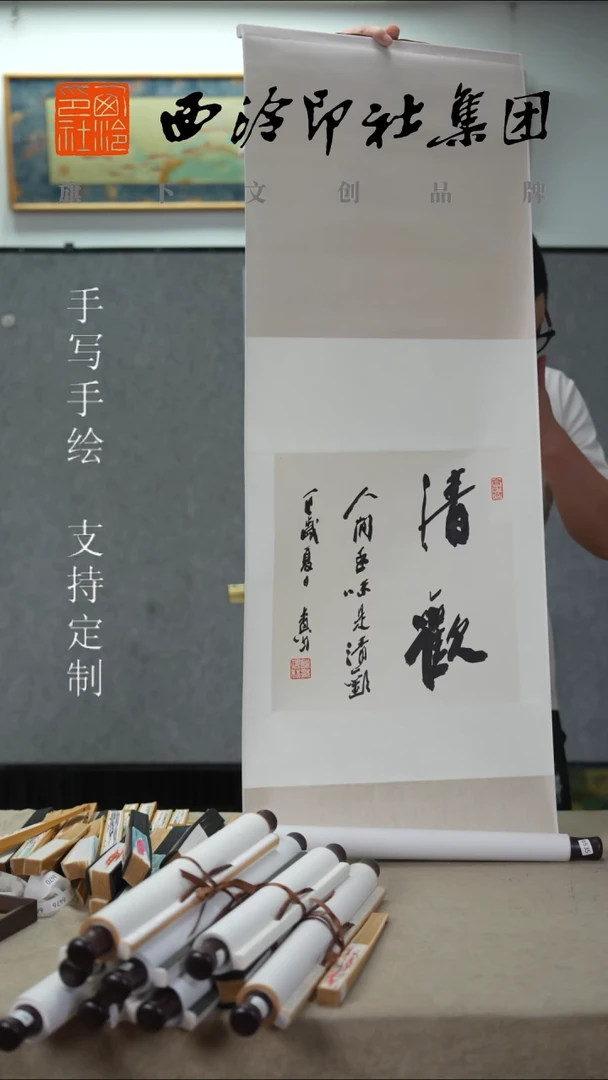 西泠印社
西泠印社集团
旗下文创品牌
手写手绘 支持定制
清歡
人间至味是清歡